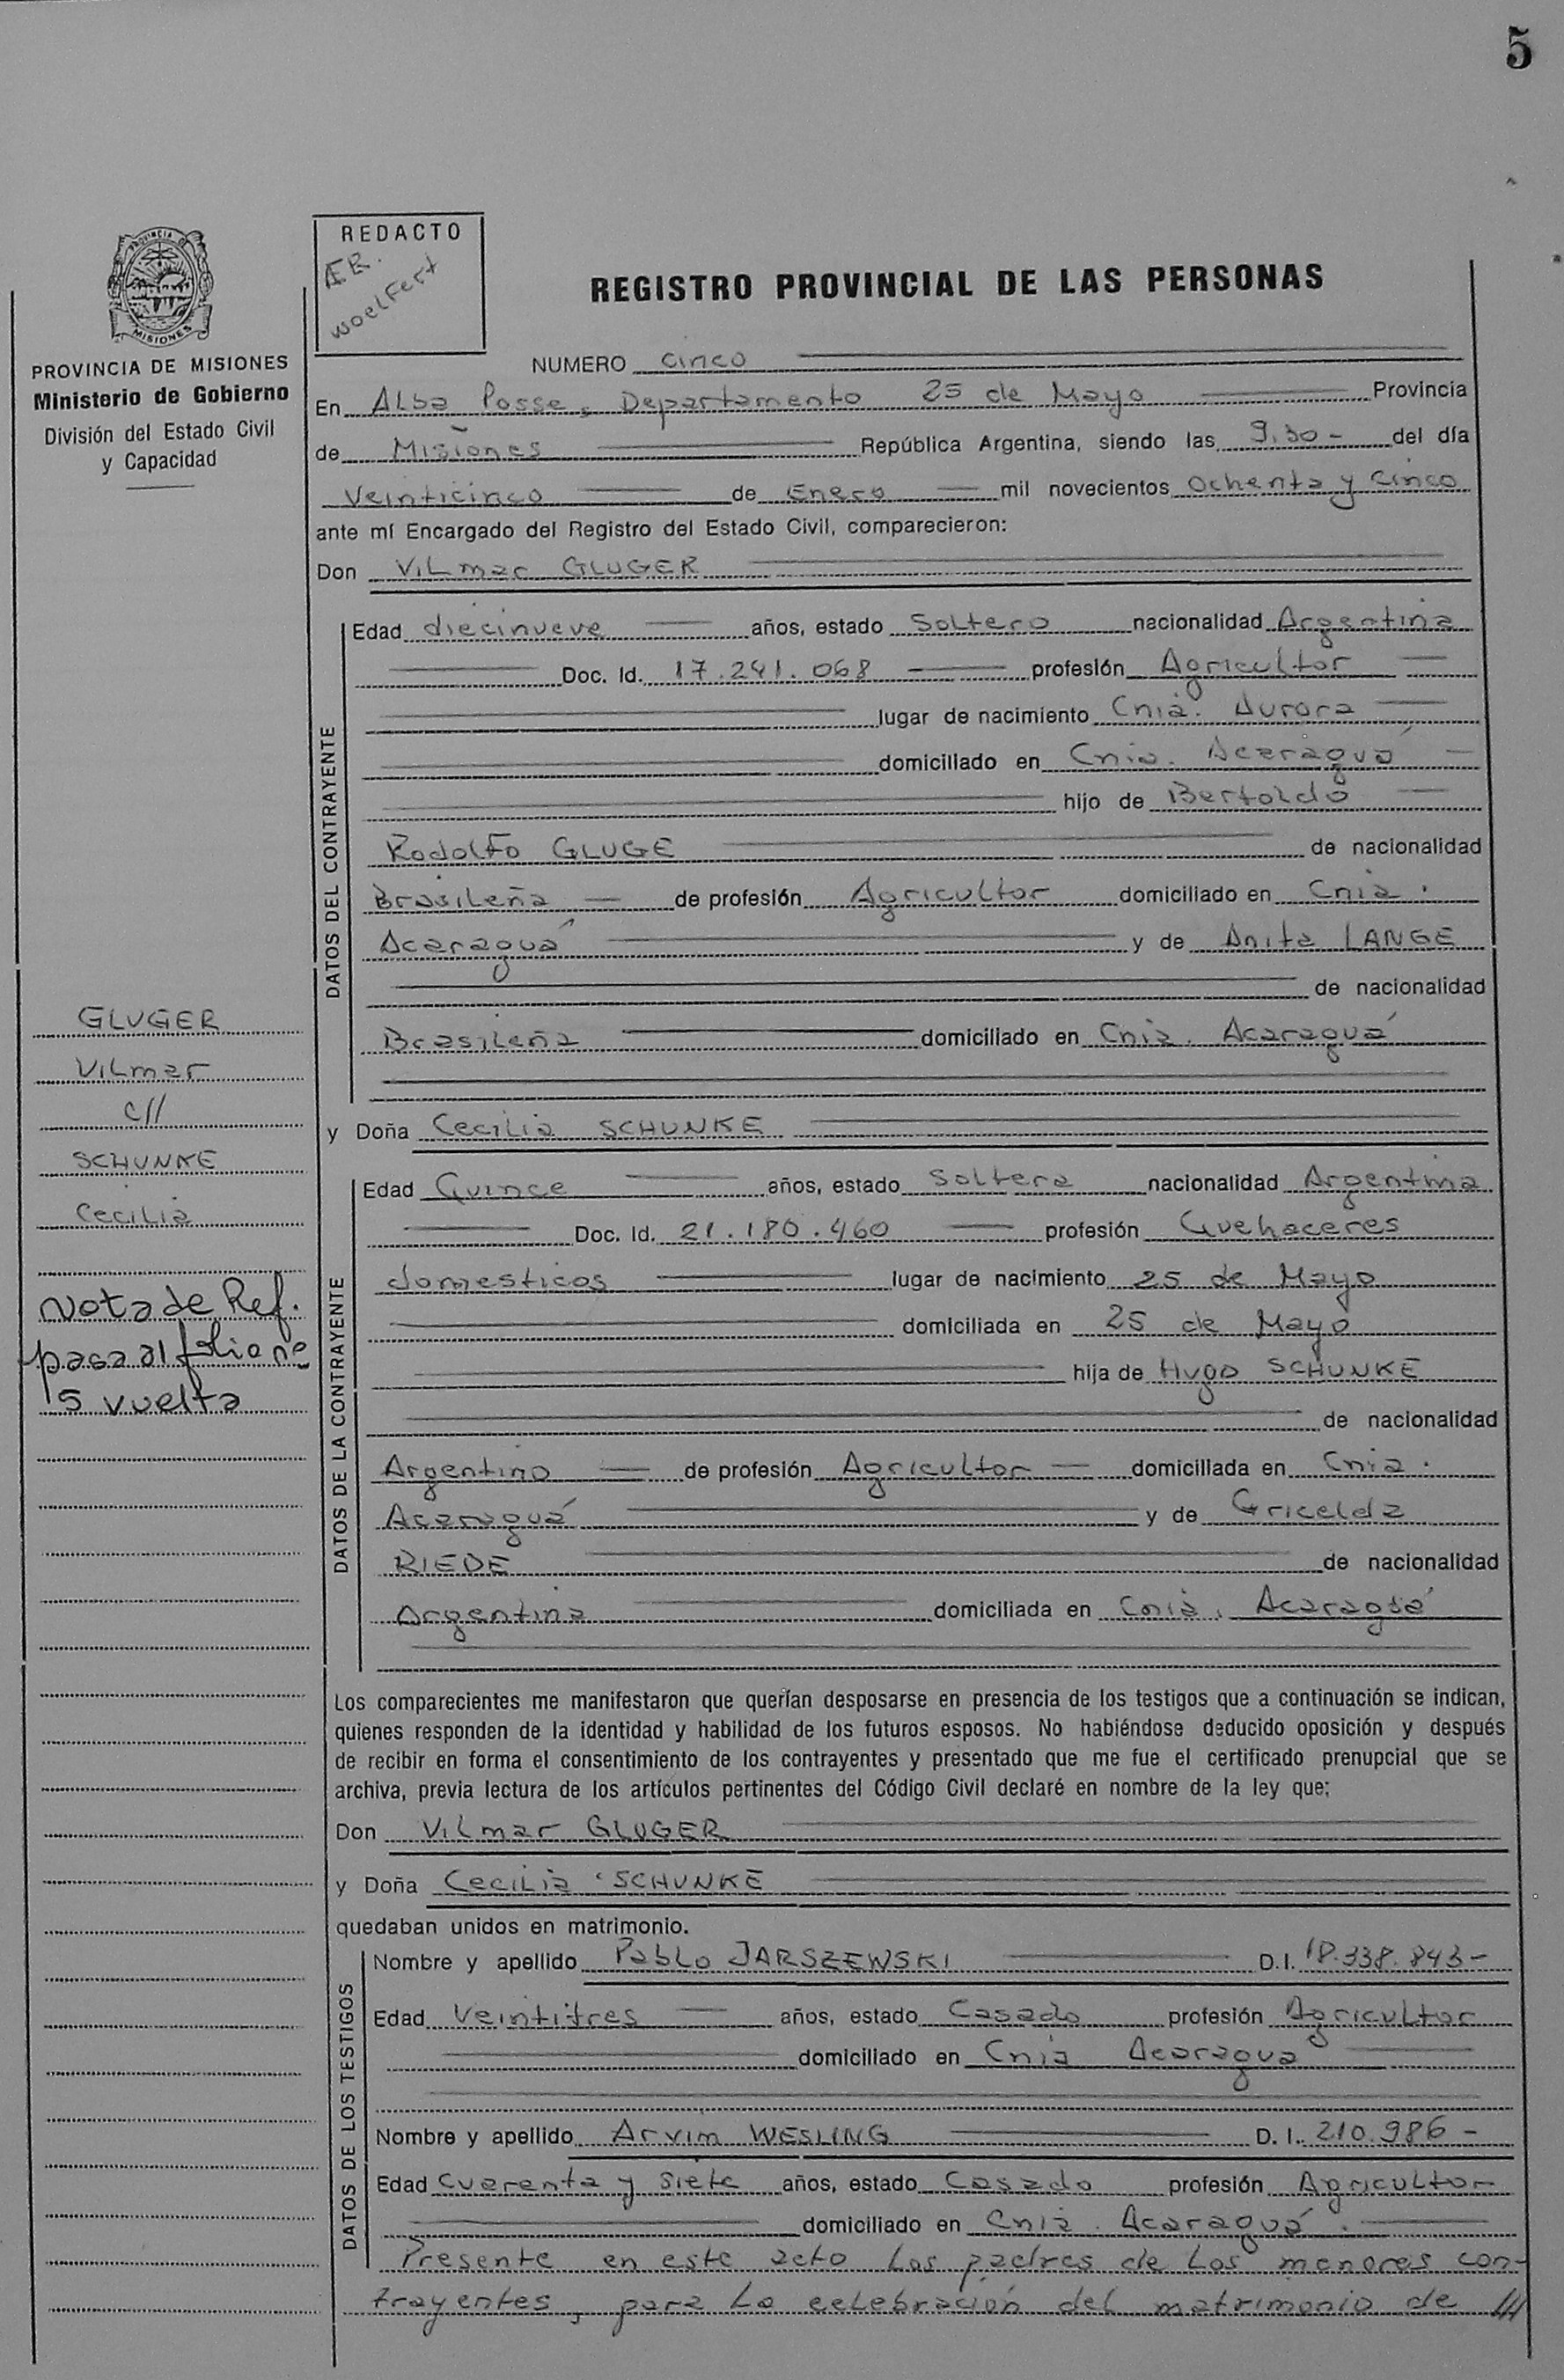 5
REDACTO
ÆR.
Woelfert
REGISTRO PROVINCIAL DE LAS PERSONAS
PROVINCIA DE
MISIONES
PROVINCIA DE MISIONES
Ministerio de Gobierno
División del Estado Civil
y Capacidad
NUMERO cinco
En Alba Posse, Departamento 25 de Mayo Provincia
de Misiones República Argentina, siendo las 9,30- del día
Veinticinco de Enero mil novecientos ochenta y cinco
ante mí Encargado del Registro del Estado Civil, comparecieron:
Don Vilmar GLUGER
DATOS DEL CONTRAYENTE
Edad diecinueve años, estado Soltero nacionalidad Argentina
Doc. Id. 17.241.068 profesión Agricultor
lugar de nacimiento Cnia. Aurora
domiciliado en Cnia. Acaraguá
hijo de Bertoldo
Rodolfo GLUGE de nacionalidad
Brasileña de profesión Agricultor domiciliado en Cnia.
Acaraguá y de Anita LANGE
de nacionalidad
Brasileña domiciliado en Cnia. Acaraguá
GLUGER
Vilmar
c//
SCHUNKE
Cecilia
Nota de Ref.
pasa al folio nº
5 vuelta
y Doña Cecilia SCHUNKE
DATOS DE LA CONTRAYENTE
Edad Quince años, estado Soltera nacionalidad Argentina
Doc. Id. 21.180.460 profesión Quehaceres
domesticos lugar de nacimiento 25 de Mayo
domiciliada en 25 de Mayo
hija de Hugo SCHUNKE
de nacionalidad
Argentino de profesión Agricultor domiciliada en Cnia.
Acaraguá y de Gricelda
RIEDE de nacionalidad
Argentina domiciliada en Cnia. Acaraguá
Los comparecientes me manifestaron que querían desposarse en presencia de los testigos que a continuación se indican,
quienes responden de la identidad y habilidad de los futuros esposos. No habiéndose deducido oposición y después
de recibir en forma el consentimiento de los contrayentes y presentado que me fue el certificado prenupcial que se
archiva, previa lectura de los artículos pertinentes del Código Civil declaré en nombre de la ley que;
Don Vilmar GLUGER
y Doña Cecilia SCHUNKE
quedaban unidos en matrimonio.
DATOS DE LOS TESTIGOS
Nombre y apellido Pablo JARSZEWSKI D.I. 18.338.843-
Edad Veintitres años, estado Casado profesión Agricultor
domiciliado en Cnia Acaragua
Nombre y apellido Arvim WESLING D. I. 210.986-
Edad Cuarenta y Siete años, estado Casado profesión Agricultor
domiciliado en Cnia. Acaraguá.
Presente en este acto los padres de los menores con-
trayentes, para la celebración del matrimonio de ///